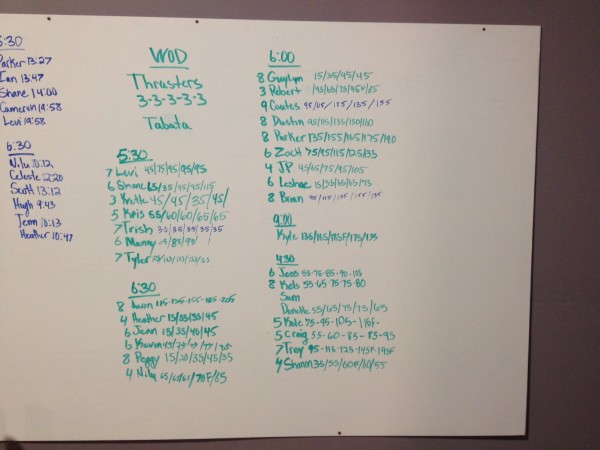 5:30
Parker 13:27
Ian 13:47
Shane 14:00
Cameron 19:58
Levi 19:58
6:30
Nilu 10:12
Celeste 12:20
Scott 13:12
Hugh 9:43
Jenn 10:13
Heather 10:47
WOD
Thrusters
3-3-3-3-3
Tabata
5:30
7 Levi 45/75/95/95/95
6 Shane 65/85/95/95/115
3 Kristle 45/45/35/45/
5 Kris 55/60/60/65/65
7 Trish 30/35/35/35/35
6 Manny
7 Tyler
6:30
8 Aaron
4 Heather 15/35/35/45
6 Jenn 15/35/40/45
6
8 Peggy 15/20/35/45/55
4 Nilu 65/65/65/70F/65
6:00
8 Graylyn 15/35/45/45
3 Robert
9 Coates 95/115/135/135/155
8 Dustin 95/115/135/150/160
8 Parker 135/155/165/175/190
6 Zach 75/95/115/125/135
4 JP 45/65/75/95/105
6
8 Brian 95/115/135/155/135
9:00
Kyle
4:30
6 Joss 55-75-85-90-105
8 Kels 55-65-75-75-80
Sam
55/65/75/75/65
5 Kate 75-95-105-
5 Craig 55-60-85-85-95
7 Troy 95-115-125-145F-145F
4 Shannon 35/55/60F/60/55